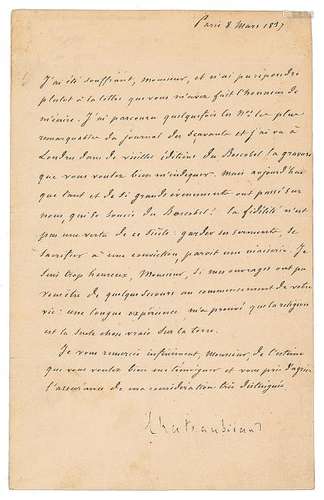 Paris 8 Mars 1837
J'ai été souffrant, Monsieur, et n'ai pu répondre
plutôt à la lettre que vous m'avez fait l'honneur de
m'écrire. J'ai parcouru quelquefois les Nos les plus
remarquables du journal des sçavants et j'ai vu à
Londres dans de vieilles éditions du Boscobel la gravure
que vous voulez bien m'indiquer. Mais aujourd'hui
que tant et de si grands évènements ont passé sur
nous, qui se soucie du Boscobel! la fidélité n'est
pas une vertu de ce siècle: garder ses serments, se
sacrifier à une conviction, parait une niaiserie. Je
suis trop heureux, Monsieur, si mes ouvrages ont pu
vous être de quelque secours au commencement de votre
vie: une longue expérience m'a prouvé que la religion
est la seule chose vraie sur la terre.
Je vous remercie infiniment, Monsieur, de l'estime
que vous voulez bien me témoigner et vous prie d'agréer
l'assurance de ma considération très distinguée
Chateaubriand